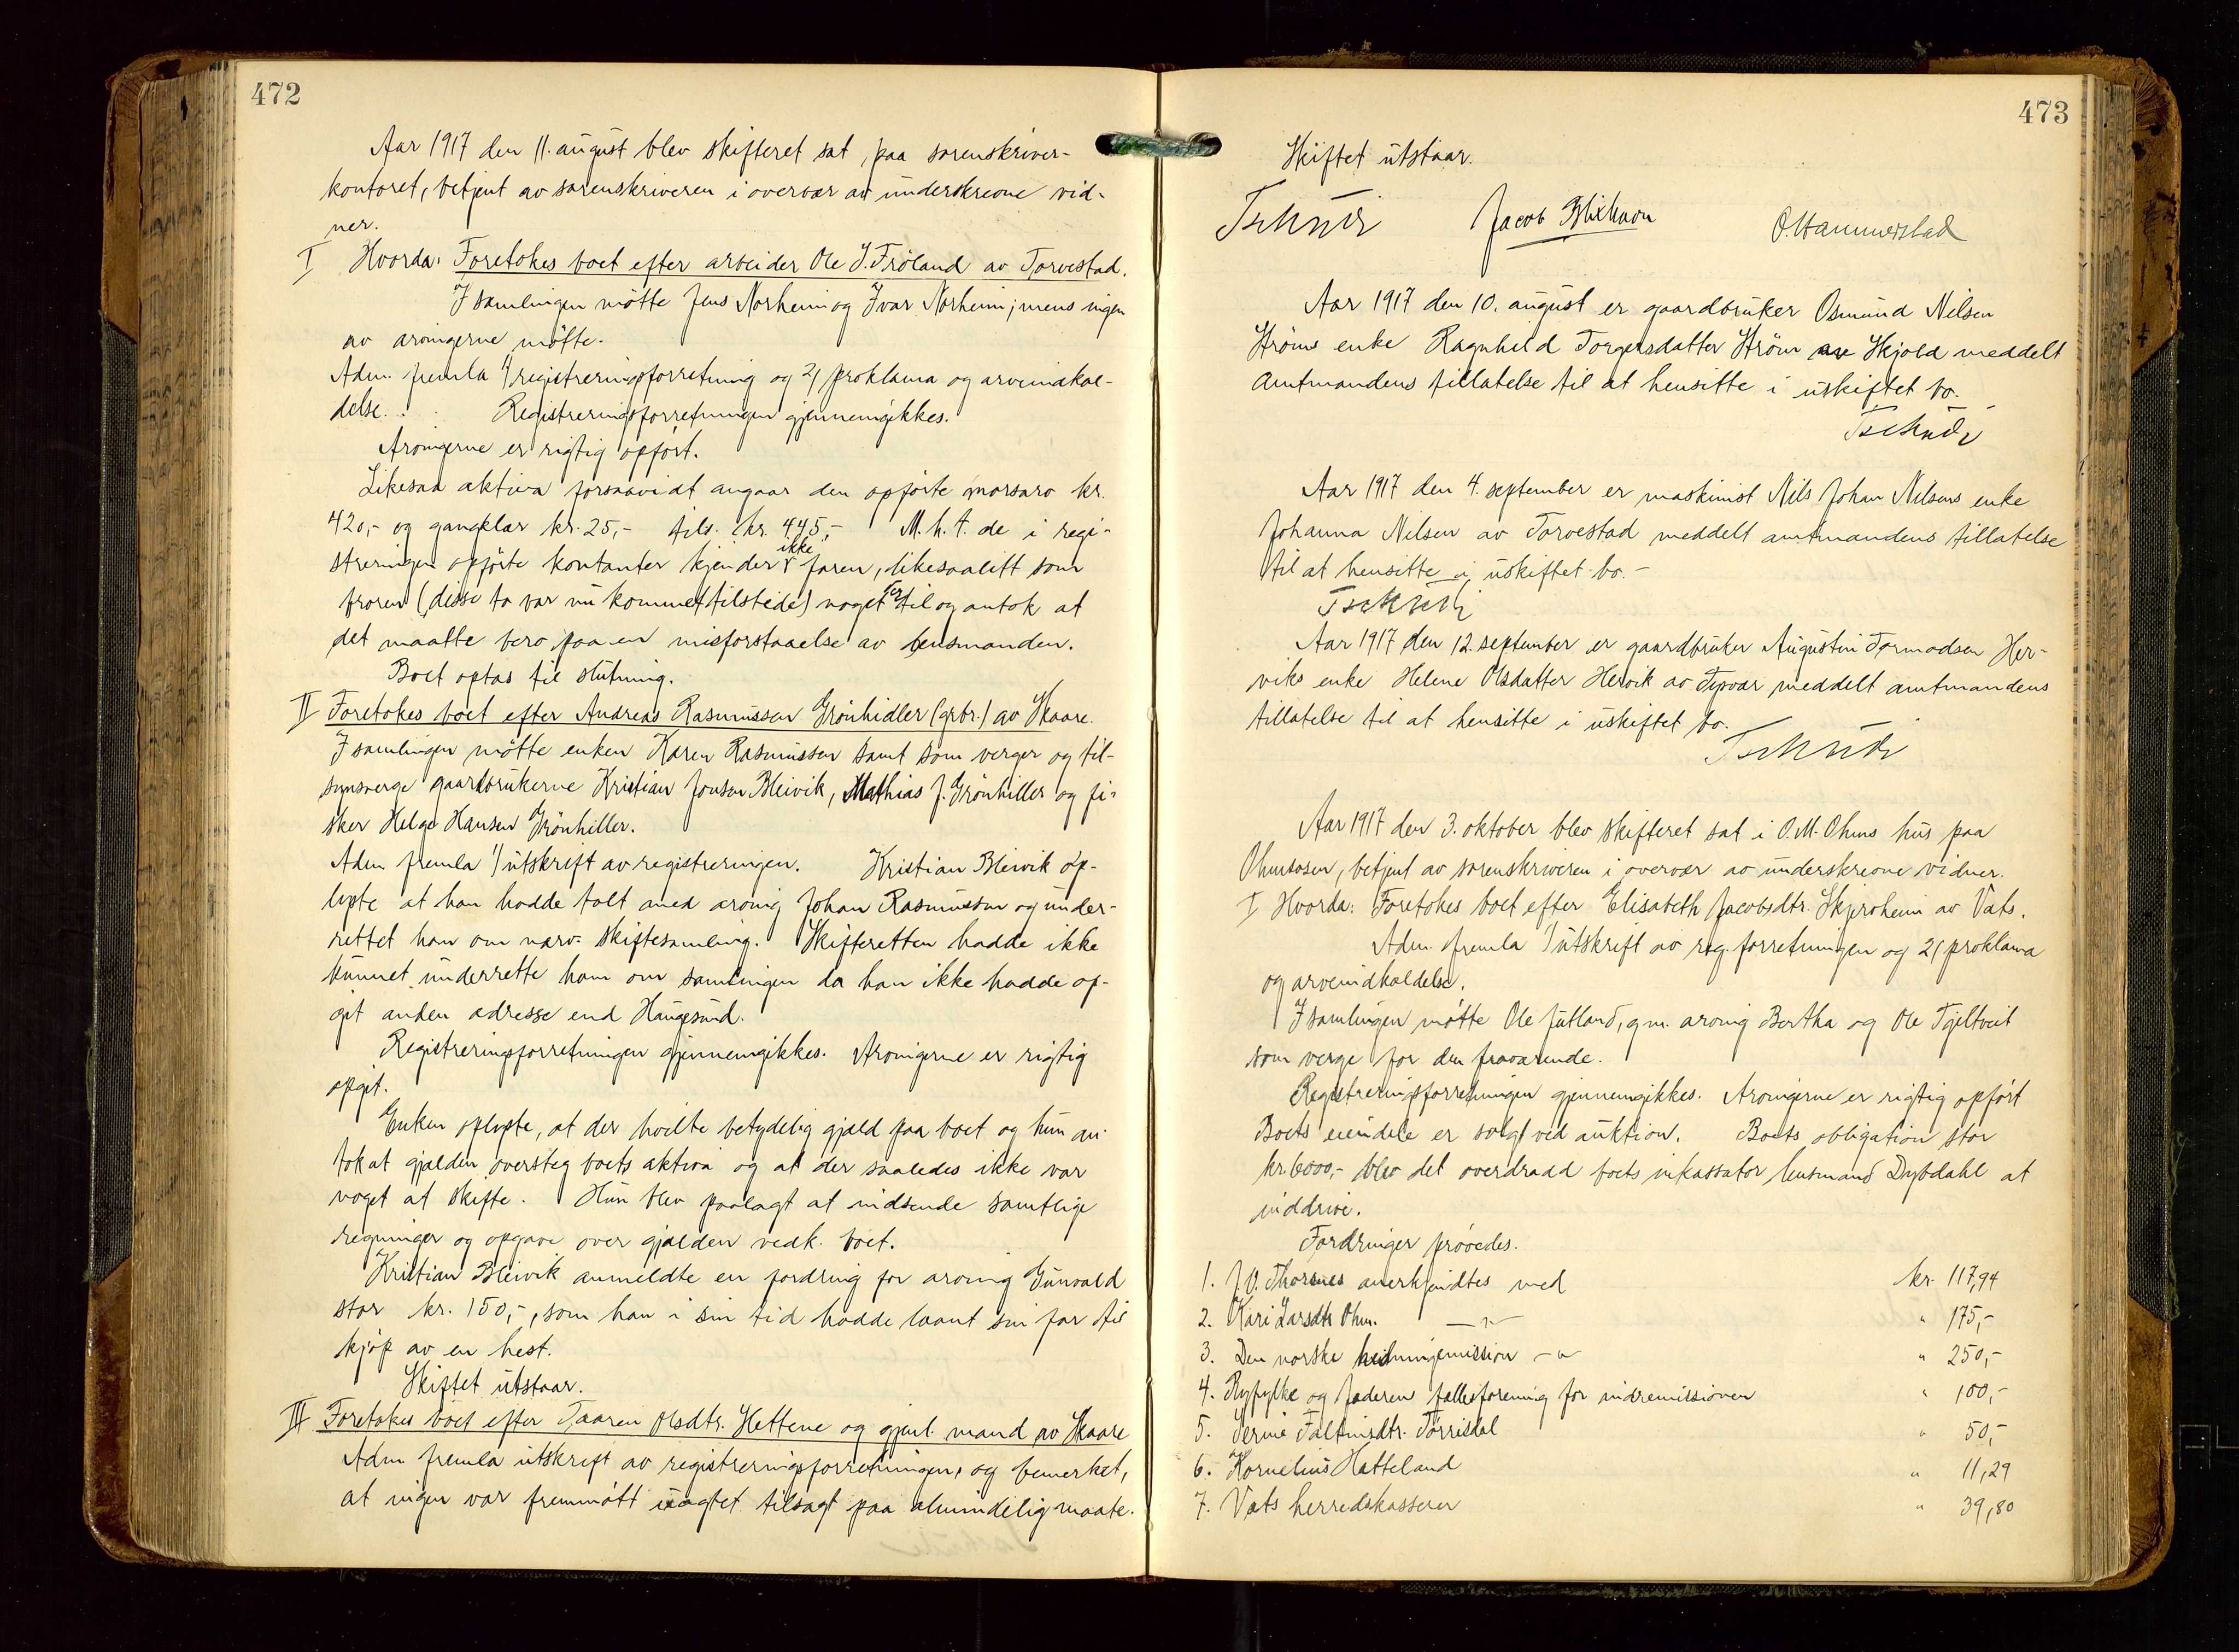 472
Aar 1917 den 11. august blev skifteret sat, paa sorenskriver-
kontoret, betjent av sorenskriveren i overvær av underskrevne vid-
ner.
I Hvorda: Foretokes boet efter arbeider Ole J. Fröland av Torvestad.
I samlingen mötte Jens Norheim og Ivar Norheim; mens ingen
av arvingerne mötte.
Adm. fremla 1/ registreringsforretning og 2/ proklama og arveindkal-
delse. Registreringsforretningen gjennemgikkes.
Arvingerne er rigtig opfört.
Likesaa aktiva forsaavidt angaar den opförte morsarv kr.
420,- og gangklær kr. 25,- tils. kr. 445,- M.h.t. de i regi-
streringen opförte kontanter kjender ikke faren, likesaalitt som
broren (disse to var nu kommet tilstede) noget til og antok at
det maatte bero paa en misforstaaelse av lensmanden.
Boet optas til slutning.
II Foretokes boet efter Andreas Rasmussen Grönhidler (grbr.) av Skaare.
I samlingen mötte enken Karen Rasmussen samt som verger og til-
synsverge gaardbrukerne Kristian Jonsen Bleivik, Mathias J. Grönhiller og fi-
sker Helge Hansen Grönhiller.
Adm. fremla 1/ utskrift av registreringen. Kristian Bleivik op-
lyste at han hadde talt med arving Johan Rasmussen og under-
rettet han om nærv. skiftesamling. Skifteretten hadde ikke
kunnet underrette ham om samlingen da han ikke hadde op-
git anden adresse end Haugesund.
Registreringsforretningen gjennemgikkes. Arvingerne er rigtig
opgit.
Enken oplyste, at der hvilte betydelig gjæld paa boet og hun an-
tok at gjælden oversteg boets aktiva og at der saaledes ikke var
noget at skifte. Hun blev paalagt at indsende samtlige
regninger og opgave over gjælden vedk. boet.
Kristian Bleivik anmeldte en fordring for arving Gunvald
stor kr. 150,-, som han i sin tid hadde laant sin far til
kjöp av en hest.
Skiftet utstaar.
III Foretokes boet efter Taaren Olsdtr. Hettene og gjenl. mand av Skaare
Adm fremla utskrift av registreringsforretningen, og bemerket,
at ingen var fremmött uagtet tilsagt paa almindelig maate.
473
Skiftet utstaar.
Tschudi Jacob Blikhavn O. Hammerstad
Aar 1917 den 10. august er gaardbruker Osmund Nilsen
Ströms enke Ragnhild Torgersdatter Ström av Skjold meddelt
Amtmandens tillatelse til at hensitte i uskiftet bo.
Tschudi
Aar 1917 den 4. september er maskinist Nils Johan Nilsens enke
Johanna Nilsen av Torvestad meddelt amtmandens tillatelse
til at hensitte i uskiftet bo.-
Tschudi
Aar 1917 den 12. september er gaardbruker Augustin Tormodsen Her-
viks enke Helene Olsdatter Hervik av Tysvær meddelt amtmandens
tillatelse til at hensitte i uskiftet bo.
Tschudi
Aar 1917 den 3. oktober blev skifteret sat i O.M. Ohms hus paa
Ohmsosen, betjent av sorenskriveren i overvær av underskrevne vidner.
I Hvorda: Foretokes boet efter Elisabeth Jacobsdtr. Skjerheim av Vats.
Adm. fremla 1/ utskrift av reg. forretningen og 2/ proklama
og arveindkaldelse.
I samlingen mötte Ole Jutland, g.m. arving Bertha og Ole Tjeltveit
som verge for den fraværende.
Registreringsforretningen gjennemgikkes. Arvingerne er rigtig opfört
Boets eiendele er solgt ved auktion. Boets obligation stor
kr. 6000,- blev det overdradd boets inkassator lensmand Dybdahl at
inddrive.
Fordringer prövedes.
1. J.V. Thorsnes anerkjendtes med kr. 117,94
2. Kari Larsdtr Ohm. —"— " 175,-
3. Den norske hedningemission -"- " 250,-
4. Ryfylke og Jæderens fællesforening for indremissionen " 100,-
5. Serine Faltinsdtr. Torrisdal " 50,-
6. Kornelius Hatteland " 11,29
7. Vats herredskasserer " 39,80